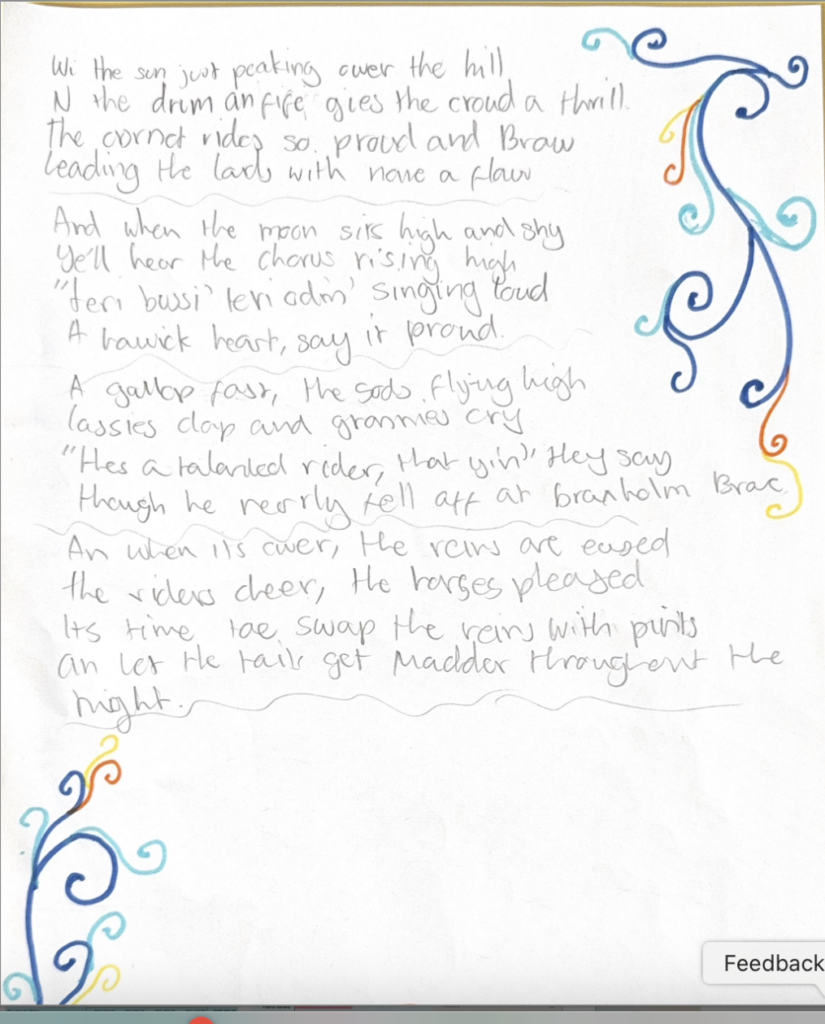 Wi the sun just peaking ower the hill
N the drum an fife gies the croud a thrill.
the cornet rides so proud and Braw
leading the lads with none a flaw
And when the moon sits high and shy
Ye'll hear the chorus rising high
"teri bussi' teri odin' singing loud
A hawick heart, say it proud.
A gallop fast, the sods flying high
lassies clap and grannies cry
"Hes a talanted rider, that yin" they say
though he nearly fell aff at branholm Brae.
An when its ower, the reins are eased
the riders cheer, the horses pleased
Its time tae swap the reins with pints
an let the tails get Madder throughout the
night.
Feedback